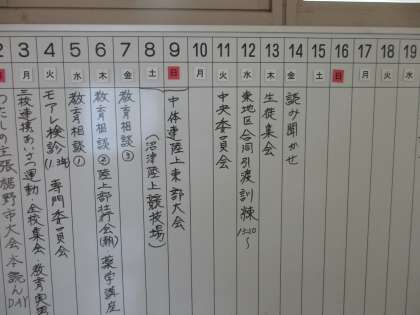 2 3 4 5 6 7 8 9 10 11 12 13 14 15 16 17 18 19
日 月 火 水 木 金 土 日 月 火 水 木 金 土 日 月 火 水
わたしの主張裾野市大会 本読んDAY
三校連携あいさつ運動 全校集会・教育実
モアレ検診(1年) 専門委員会
教育相談①
教育相談② 陸上部壮行会(朝) 薬学講座
教育相談③
(沼津陸上競技場)
中体連陸上東部大会
中央委員会
東地区合同引渡訓練 13:20〜
生徒集会
読み聞かせ